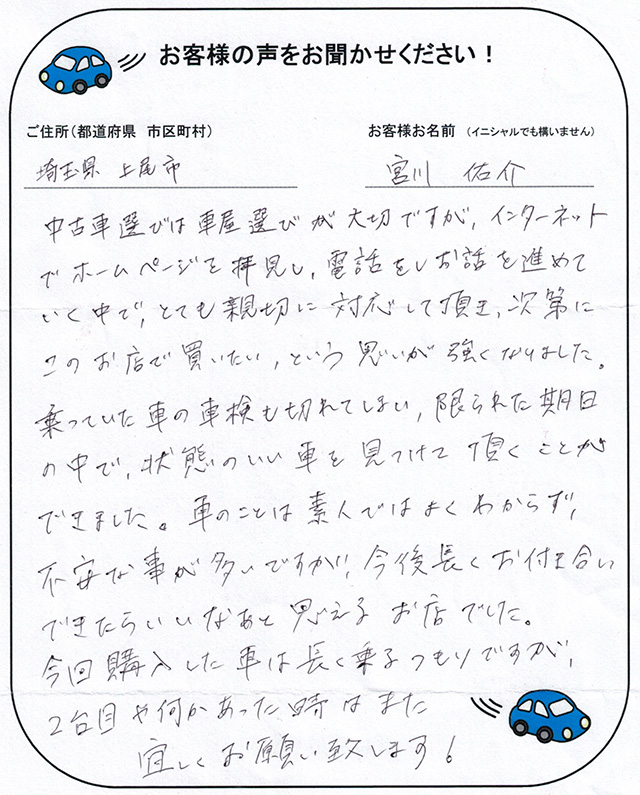 お客様の声をお聞かせください！
ご住所（都道府県 市区町村）
お客様お名前 （イニシャルでも構いません）
埼玉県 上尾市
宮川 佑介
中古車選びは車屋選びが大切ですが、インターネット
でホームページを拝見し、電話をしお話を進めて
いく中で、とても親切に対応して頂き、次第に
このお店で買いたい、という思いが強くなりました。
乗っていた車の車検も切れてしまい、限られた期日
の中で、状態のいい車を見つけて頂くことが
できました。車のことは素人ではよくわからず、
不安な事が多いですが、今後長くお付き合い
できたらいいなあと思えるお店でした。
今回購入した車は長く乗るつもりですが、
2台目や何かあった時はまた
宜しくお願い致します！